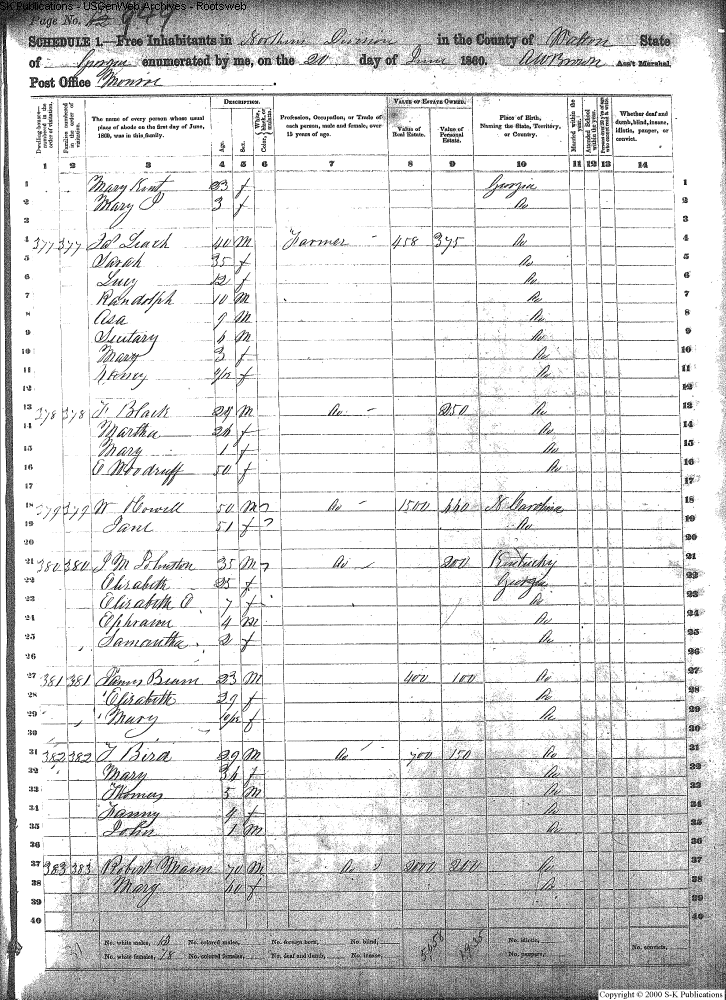 S-K Publications - USGenWeb Archives - Rootsweb
Page No. 949
SCHEDULE 1.—Free Inhabitants in Northern Division in the County of Walton State
of Georgia enumerated by me, on the 20 day of June 1860. A W Brown Ass't Marshal.
Post Office Monroe
Dwelling-houses—numbered in the order of visitation.
Families numbered in the order of visitation.
The name of every person whose usual place of abode on the first day of June, 1860, was in this family.
DESCRIPTION.
Age.
Sex.
Color, White, black, or mulatto.
Profession, Occupation, or Trade of each person, male and female, over 15 years of age.
VALUE OF ESTATE OWNED.
Value of Real Estate.
Value of Personal Estate.
Place of Birth, Naming the State, Territory, or Country.
Married within the year.
Attended School within the year.
Whether deaf and dumb, blind, insane, idiotic, pauper, or convict.
1 2 3 4 5 6 7 8 9 10 11 12 13 14
1 Mary Kent 23 f Georgia 1
2 Mary J 3 f Do 2
3 3
4 377 377 Jas Leach 40 M Farmer 458 375 Do 4
5 Sarah 35 f Do 5
6 Lucy 12 f Do 6
7 Randolph 10 M Do 7
8 Asa 9 M Do 8
9 6 M Do 9
10 Mary 3 f Do 10
11 f Do 11
12 12
13 378 378 F Black 24 M Do 250 Do 13
14 Martha 26 f Do 14
15 Mary 1 f Do 15
16 E Woodruff 50 f Do 16
17 17
18 379 379 W Howell 50 M Do 1500 440 N Carolina 18
19 Jane 51 f Do 19
20 20
21 380 380 J M Johnston 35 M Do 200 Kentucky 21
22 Elizabeth 25 f Georgia 22
23 Elizabeth C 7 f Do 23
24 Ephraim 4 M Do 24
25 Samantha 2 f Do 25
26 26
27 381 381 James Beam 23 M 400 100 Do 27
28 Elizabeth 29 f Do 28
29 Mary f Do 29
30 30
31 382 382 T Bird 29 M Do 700 150 Do 31
32 Mary 36 f Do 32
33 Thomas 5 M Do 33
34 Fanny 4 f Do 34
35 John 1 M Do 35
36 36
37 383 383 Robert Mann 70 M Do 2000 200 Do 37
38 Mary 60 f Do 38
39 39
40 40
No. white males, No. colored males, No. foreign born, No. blind, 5058 No. idiotic, No. convicts,
No. white females, 18 No. colored females, No. deaf and dumb, No. insane, No. paupers,
Copyright © 2000 S-K Publications